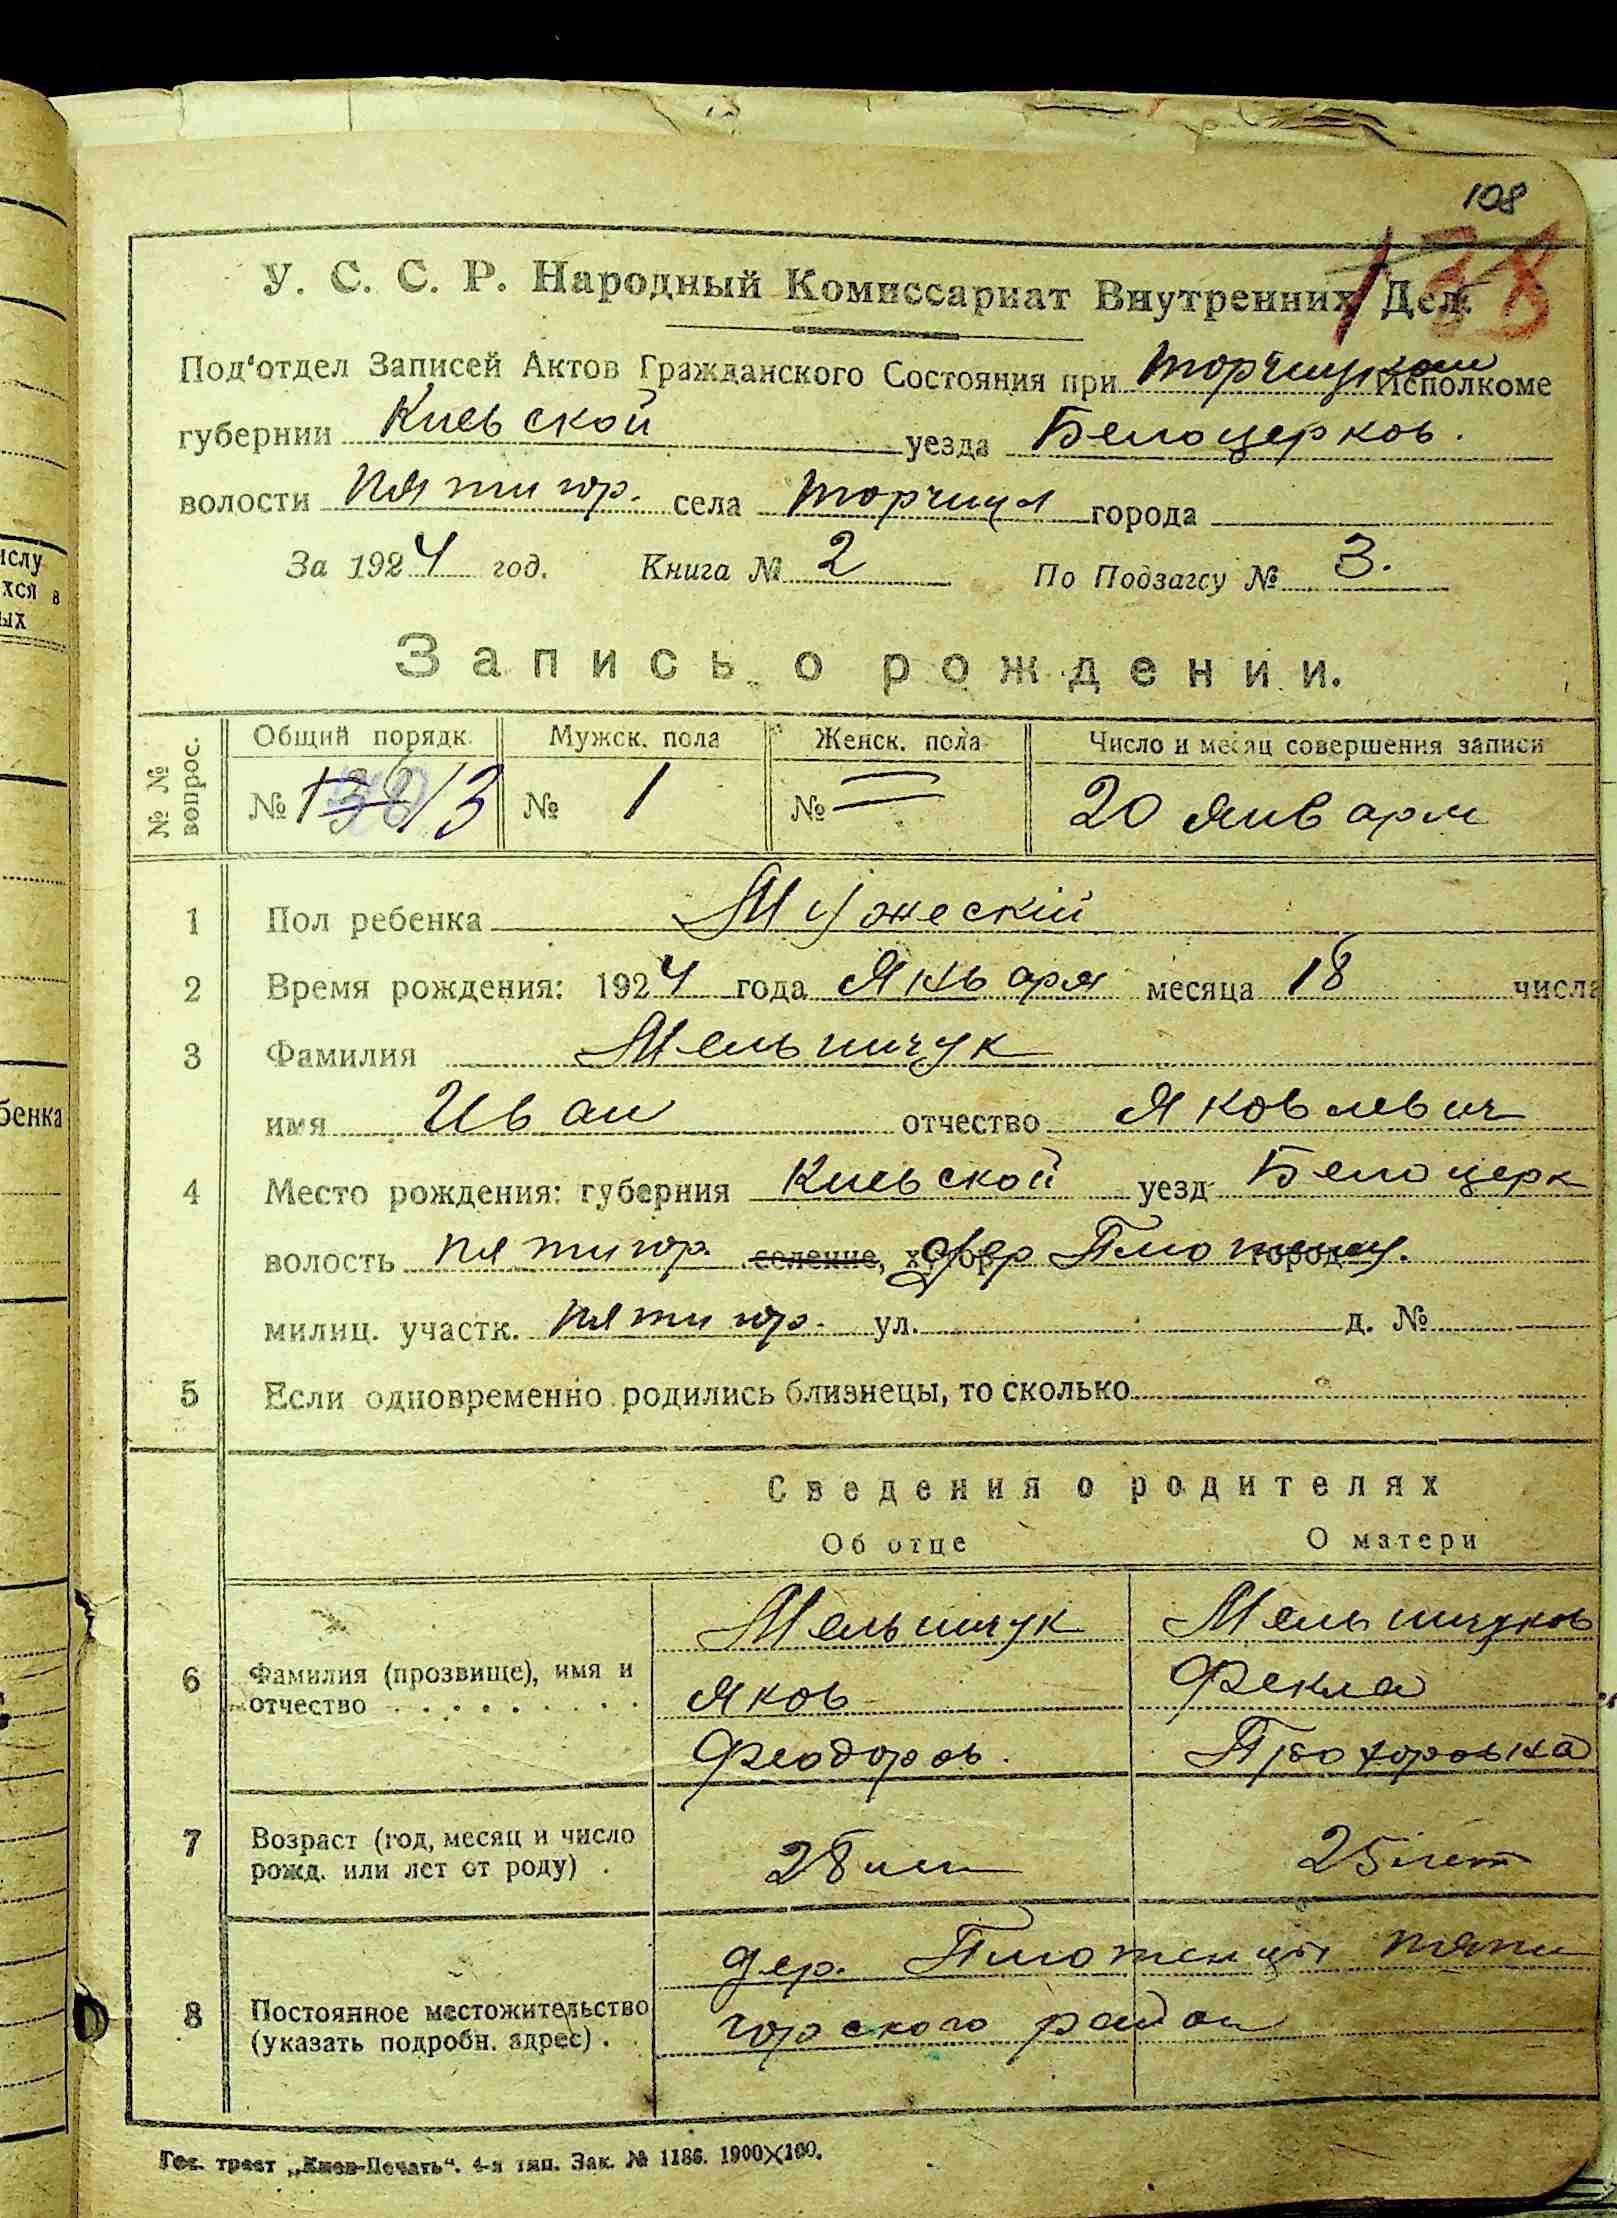 108
138
У. С. С. Р. Народный Комиссариат Внутренних Дел.
Под'отдел Записей Актов Гражданского Состояния при Торчицком Исполкоме
губернии Киевской уезда Белоцерков.
волости Пятигор. села Торчица города
За 1924 год. Книга № 2 По Подзагсу № 3.
Запись о рождении.
№ № вопрос. Общий порядк. Мужск. пола Женск. пола Число и месяц совершения записи
№ 13 № 1 № 20 января
1 Пол ребенка Мужеский
2 Время рождения: 1924 года Января месяца 18 числа
3 Фамилия Мельничук
имя Иван отчество Яковлевич
4 Место рождения: губерния Киевской уезд Белоцерк
волость Пятигор. селение, дер Плотенц.
милиц. участк. Пятигор. ул. д. №
5 Если одновременно родились близнецы, то сколько
Сведения о родителях
Об отце О матери
6 Фамилия (прозвище), имя и отчество
Мельничук Мельничуков
Яков Фекла
Феодоров. Прохоровна
7 Возраст (год, месяц и число рожд. или лет от роду) .
28 лет 25 лет
8 Постоянное местожительство (указать подробн. адрес) .
дер. Плотенцы Пяти
горского района
Гос. трест „Киев-Печать“. 4-я тип. Зак. № 1186. 1900×100.
ислу
хся в
ых
бенка